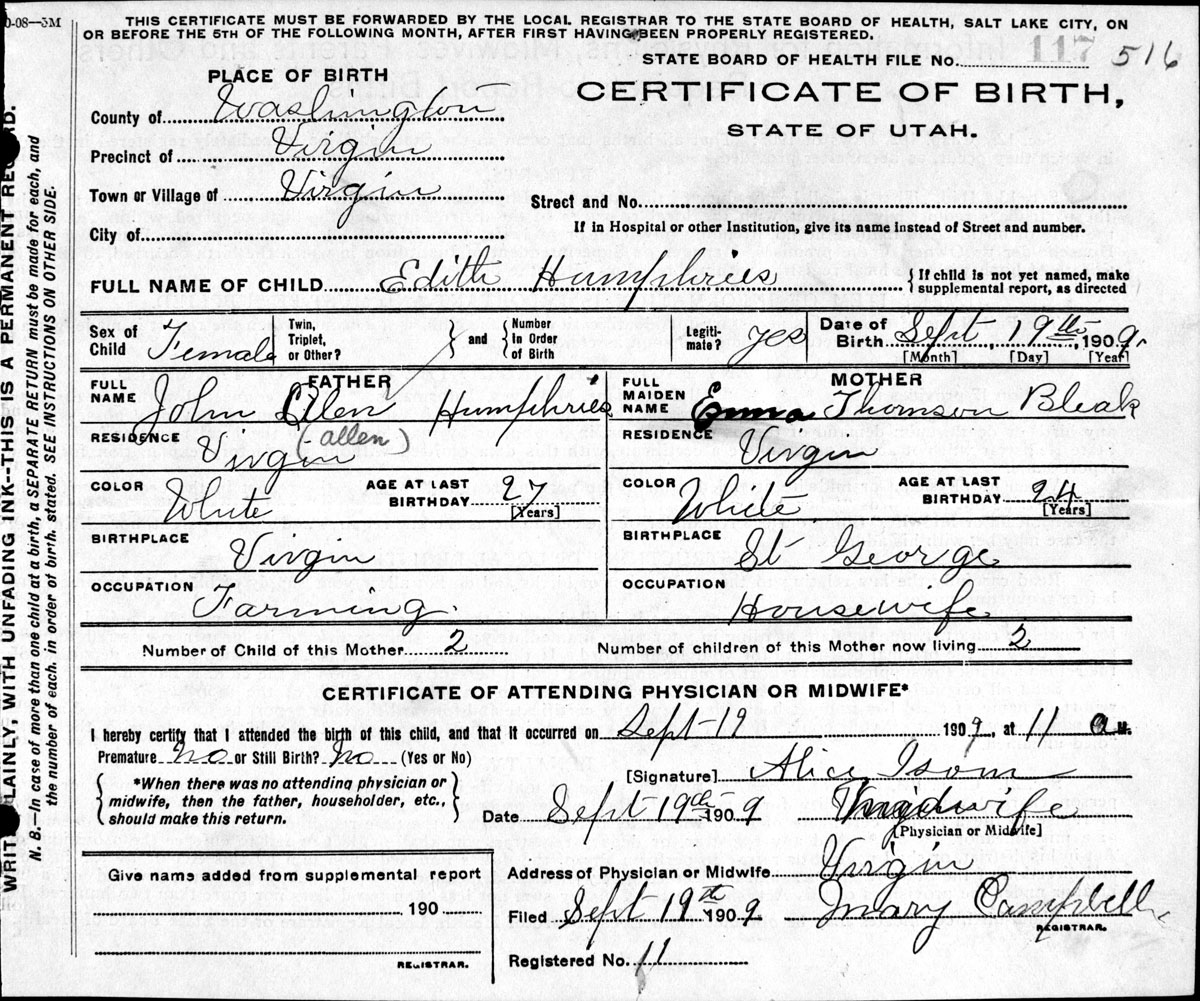 0-08--3M
THIS CERTIFICATE MUST BE FORWARDED BY THE LOCAL REGISTRAR TO THE STATE BOARD OF HEALTH, SALT LAKE CITY, ON
OR BEFORE THE 5TH OF THE FOLLOWING MONTH, AFTER FIRST HAVING BEEN PROPERLY REGISTERED.
STATE BOARD OF HEALTH FILE No. 117 516
PLACE OF BIRTH
CERTIFICATE OF BIRTH,
STATE OF UTAH.
County of Washington
Precinct of Virgin
Town or Village of Virgin
Street and No.
City of
If in Hospital or other Institution, give its name instead of Street and number.
FULL NAME OF CHILD Edith Humphries { If child is not yet named, make
supplemental report, as directed
Sex of Child Female Twin, Triplet, or Other? } and { Number In Order of Birth Legiti-mate? yes Date of Birth Sept, 19th, 1909.
[Month] [Day] [Year]
FATHER
FULL NAME John Allen Humphries
(-allen)
RESIDENCE Virgin
COLOR White AGE AT LAST BIRTHDAY 27 [Years]
BIRTHPLACE Virgin
OCCUPATION Farming.
MOTHER
FULL MAIDEN NAME Emma Thomson Bleak
RESIDENCE Virgin
COLOR White AGE AT LAST BIRTHDAY 24 [Years]
BIRTHPLACE St George
OCCUPATION Housewife
Number of Child of this Mother 2 Number of children of this Mother now living 2
CERTIFICATE OF ATTENDING PHYSICIAN OR MIDWIFE*
I hereby certify that I attended the birth of this child, and that it occurred on Sept-19 1909, at 11 a M.
Premature no or Still Birth? no (Yes or No)
{ *When there was no attending physician or
midwife, then the father, householder, etc.,
should make this return. }
[Signature] Alice Isom
Date Sept 19th 1909 midwife
[Physician or Midwife]
Address of Physician or Midwife Virgin
Filed Sept 19th 1909 Mary Campbell
REGISTRAR.
Registered No. 11
Give name added from supplemental report
190
REGISTRAR.
WRITE PLAINLY, WITH UNFADING INK--THIS IS A PERMANENT RECORD.
N. B.--In case of more than one child at a birth, a SEPARATE RETURN must be made for each, and
the number of each, in order of birth, stated. SEE INSTRUCTIONS ON OTHER SIDE.